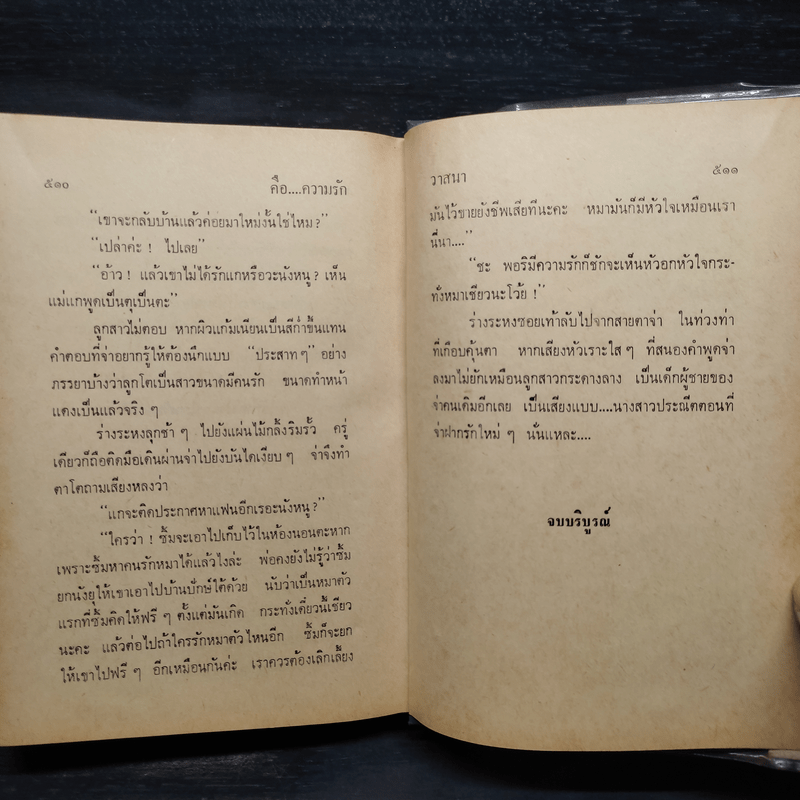 ๕๑๐ คือ....ความรัก
“เขาจะกลับบ้านแล้วค่อยมาใหม่งั้นใช่ไหม?”
“เปล่าค่ะ! ไปเลย”
“อ้าว! แล้วเขาไม่ได้รักแกหรือวะนังหนู? เห็น
แม่แกพูดเป็นตุเป็นตะ”
ลูกสาวไม่ตอบ หากผิวแก้มเนียนเป็นสีก่ำขึ้นแทน
คำตอบที่จ่าอยากรู้ให้ต้องนึกแบบ “ประสาทๆ” อย่าง
ภรรยาบ้างว่าลูกโตเป็นสาวขนาดมีคนรัก ขนาดทำหน้า
แดงเป็นแล้วจริง ๆ
ร่างระหงลุกช้า ๆ ไปยังแผ่นไม้กลิ้งริมรั้ว ครู่
เดียวก็ถือติดมือเดินผ่านจ่าไปยังบันไดเงียบๆ จ่าจึงทำ
ตาโตถามเสียงหลงว่า
“แกจะติดประกาศหาแฟนอีกเรอะนังหนู?”
“ใครว่า! ซิ้มจะเอาไปเก็บไว้ในห้องนอนตะหาก
เพราะซิ้มหาคนรักหมาได้แล้วไงล่ะ พ่อคงยังไม่รู้ว่าซิ้ม
ยกนังยุให้เขาเอาไปบ้านปักษ์ใต้ด้วย นับว่าเป็นหมาตัว
แรกที่ซิ้มคิดให้ฟรี ๆ ตั้งแต่มันเกิด กระทั่งเดี๋ยวนี้เชียว
นะคะ แล้วต่อไปถ้าใครรักหมาตัวไหนอีก ซิ้มก็จะยก
ให้เขาไปฟรี ๆ อีกเหมือนกันค่ะ เราควรต้องเลิกเลี้ยง
วาสนา ๕๑๑
มันไว้ขายยังชีพเสียทีนะคะ หมามันก็มีหัวใจเหมือนเรา
นี่นา....”
“ซะ พอริมีความรักก็ชักจะเห็นหัวอกหัวใจกระ-
ทั่งหมาเชียวนะโว้ย!”
ร่างระหงซอยเท้าลับไปจากสายตาจ่า ในท่วงท่า
ที่เกือบคุ้นตา หากเสียงหัวเราะใสๆ ที่สนองคำพูดจ่า
ลงมาไม่ยักเหมือนลูกสาวกระดางลาง เป็นเด็กผู้ชายของ
จ่าคนเดิมอีกเลย เป็นเสียงแบบ....นางสาวประณีตตอนที่
จ่าฝากรักใหม่ ๆ นั่นแหละ....
จบบริบูรณ์